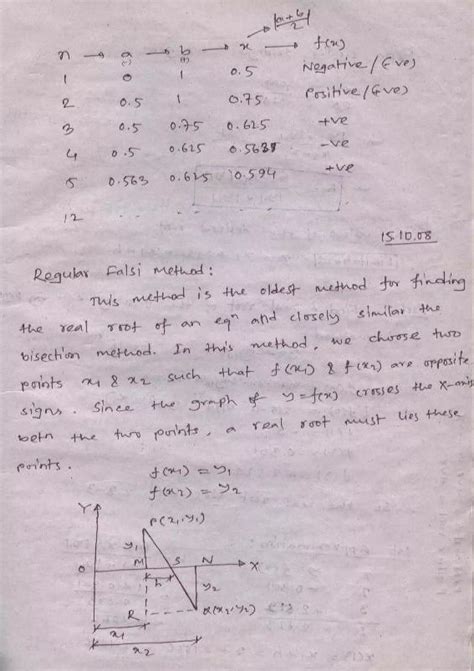 |a+b|/2
n → a → b → x → f(x)
(-) (+)
1 0 1 0.5 Negative/(-ve)
2 0.5 1 0.75 Positive/(+ve)
3 0.5 0.75 0.625 +ve
4 0.5 0.625 0.563 -ve
5 0.563 0.625 0.594 +ve
12 .. .. .. ..
15.10.08
Regular Falsi Method:
This method is the oldest method for finding
the real root of an eqⁿ and closely similar the
bisection method. In this method, we choose two
points x1 & x2 such that f(x1) & f(x2) are opposite
signs. Since the graph of y=f(x) crosses the X-axis
betn the two points, a real root must lies these
points.
f(x1) = y1
f(x2) = y2
Y
P(x1,y1)
y1
O M S N X
h y2
R Q(x2,y2)
x1
x2